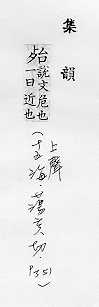 集韻
殆說文危也
一曰近也
上聲
(十五海.蕩亥切.P351)